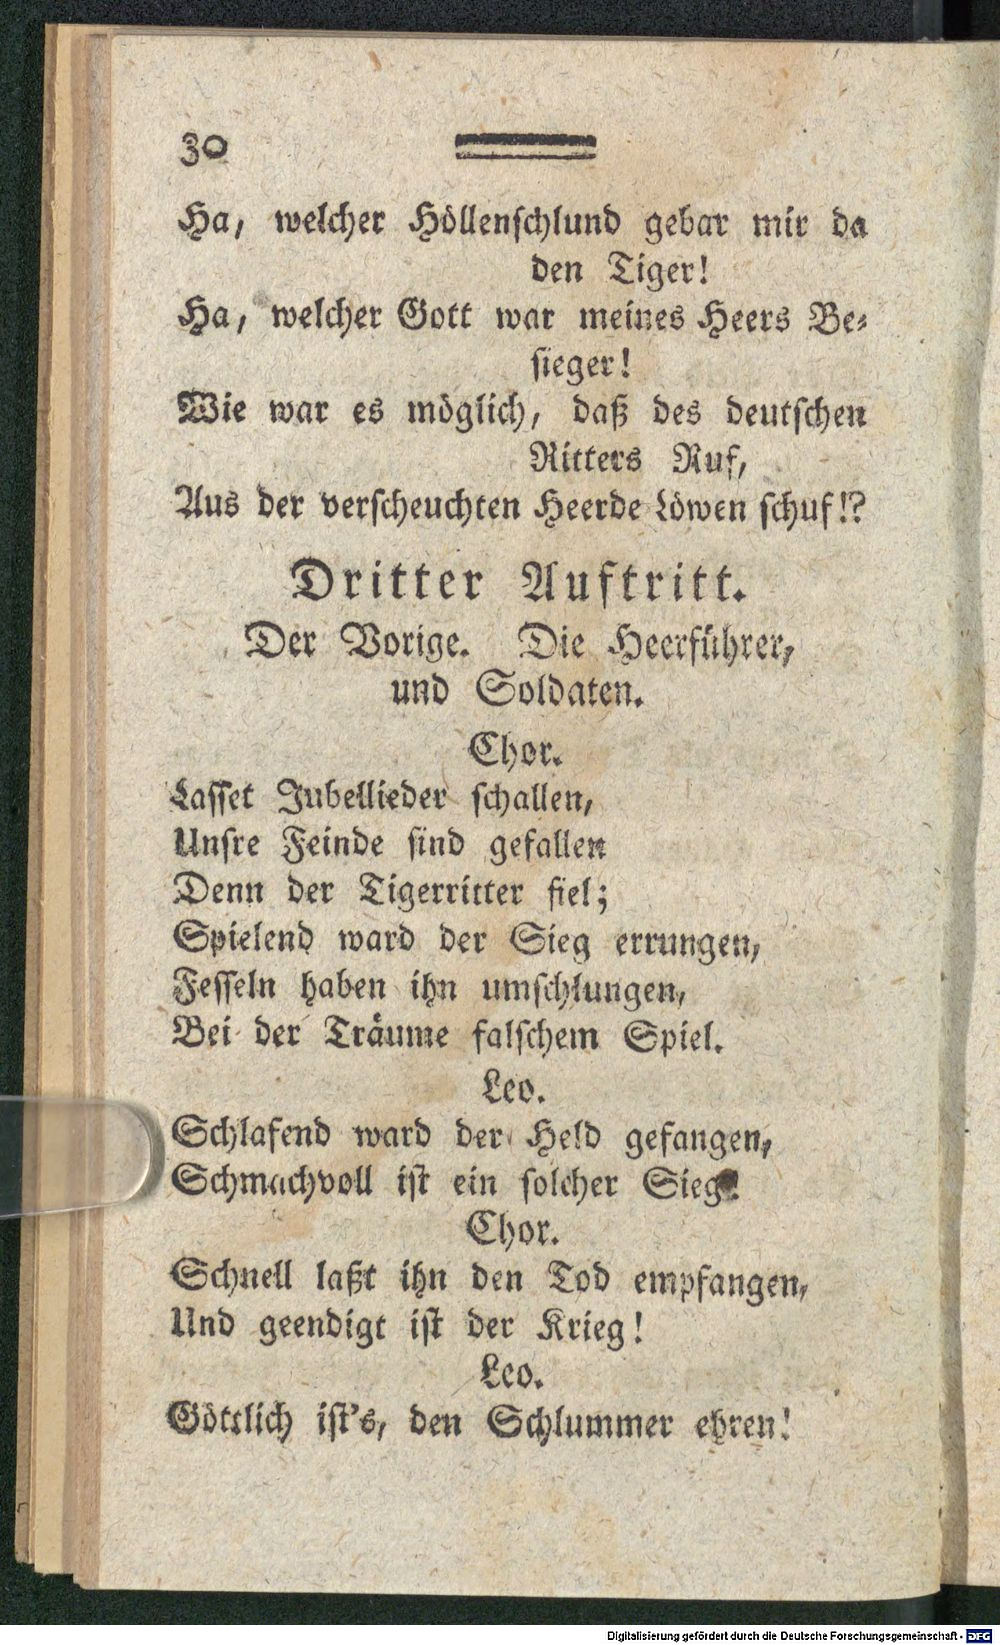 30
Ha, welcher Höllenschlund gebar mir da
den Tiger!
Ha, welcher Gott war meines Heers Be-
sieger!
Wie war es möglich, daß des deutschen
Ritters Ruf,
Aus der verscheuchten Heerde Löwen schuf!?
Dritter Auftritt.
Der Vorige. Die Heerführer,
und Soldaten.
Chor.
Lasset Jubellieder schallen,
Unsre Feinde sind gefallen
Denn der Tigerritter fiel;
Spielend ward der Sieg errungen,
Fesseln haben ihn umschlungen,
Bei der Träume falschem Spiel.
Leo.
Schlafend ward der Held gefangen,
Schmachvoll ist ein solcher Sieg!
Chor.
Schnell laßt ihn den Tod empfangen,
Und geendigt ist der Krieg!
Leo.
Göttlich ist's, den Schlummer ehren!
Digitalisierung gefördert durch die Deutsche Forschungsgemeinschaft - DFG